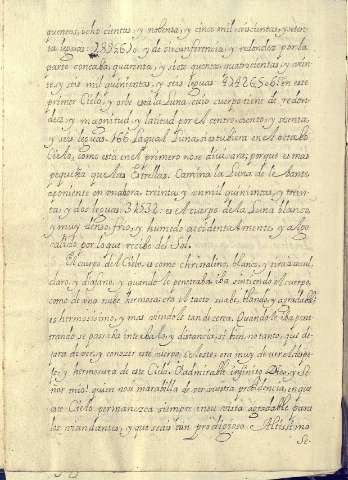 quenta, ocho cientas, y nobenta, y cinco mil seiscientas, y setenta
leguas: y de circunferencia, y redondez por la
parte concaba, quarenta, y siete quentas, quatrocientas, y veinte
y seis mil quinientas, y seis leguas: 47426506: en este
primer Cielo, y orbe está la Luna, cuio cuerpo tiene de redon
dez, y magnitud, y latitud por el centro, ciento, y sesenta,
y seis leguas: 166: La qual Luna, si estubiera en el octabo
Cielo, como está en el primero nos divisara; porque es mas
pequeña que las Estrellas. Camina la Luna de lebante
a poniente en una hora, treinta, y un mil, quinientas, y trein
ta, y dos leguas: 31532: es el cuerpo de la Luna blanco,
y muy denso, frio, y humedo accidentalmente, y algo
calido por lo que recibe del Sol.
El cuerpo del Cielo, es como christalino, blanco, y tira a azul,
claro, y diafano, y quando le penetraba, iba sintiendo el cuerpo
como de una nube hermosa, era el tacto suabe, blando, y agradable
es hermosissimo, y mas viendole tan de cerca. Quando le iba pene
trando se passaba interbalo, y distancia, si bien no tanto, que de
jara de ver, y conocer este cuerpo celeste: era muy de ver el
y hermosura de este Cielo. O admirable infinito Dios, y Se
ñor mio! quien nos marabilla de vuestra probidencia, en que
este Cielo permanezca siempre en su vista agradable para
los viandantes, y que seais tan prodigioso. Altissimo
Se-